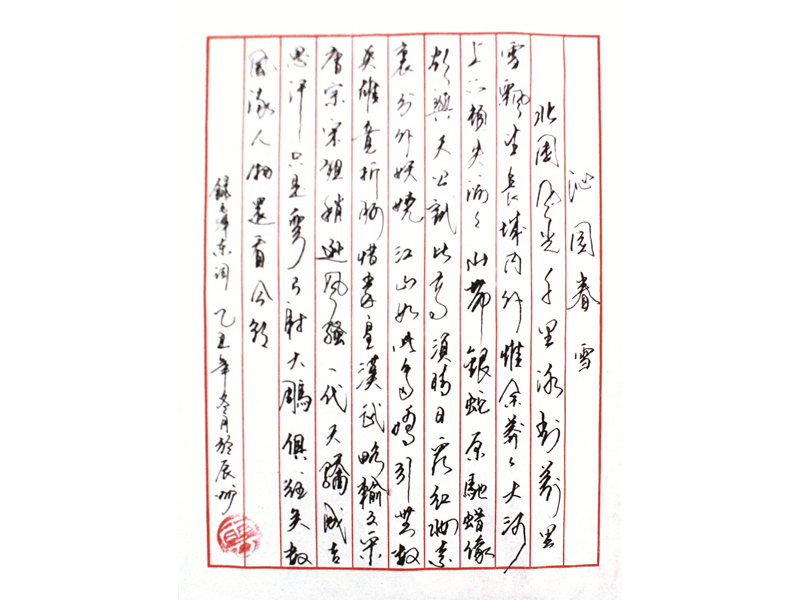 沁园春 雪
北国风光千里冰封万里
雪飘望长城内外惟余莽々大河
上下顿失滔々山舞銀蛇原馳蜡像
欲與天公試比高須晴日看红妆素
裹分外妖娆江山如此多嬌引無数
英雄竟折腰惜秦皇漢武略輸文采
唐宗宋祖稍逊风骚一代天驕成吉
思汗只是弯弓射大鵰俱往矣数
风流人物還看今朝
録毛泽东词 乙丑年冬月於辰州